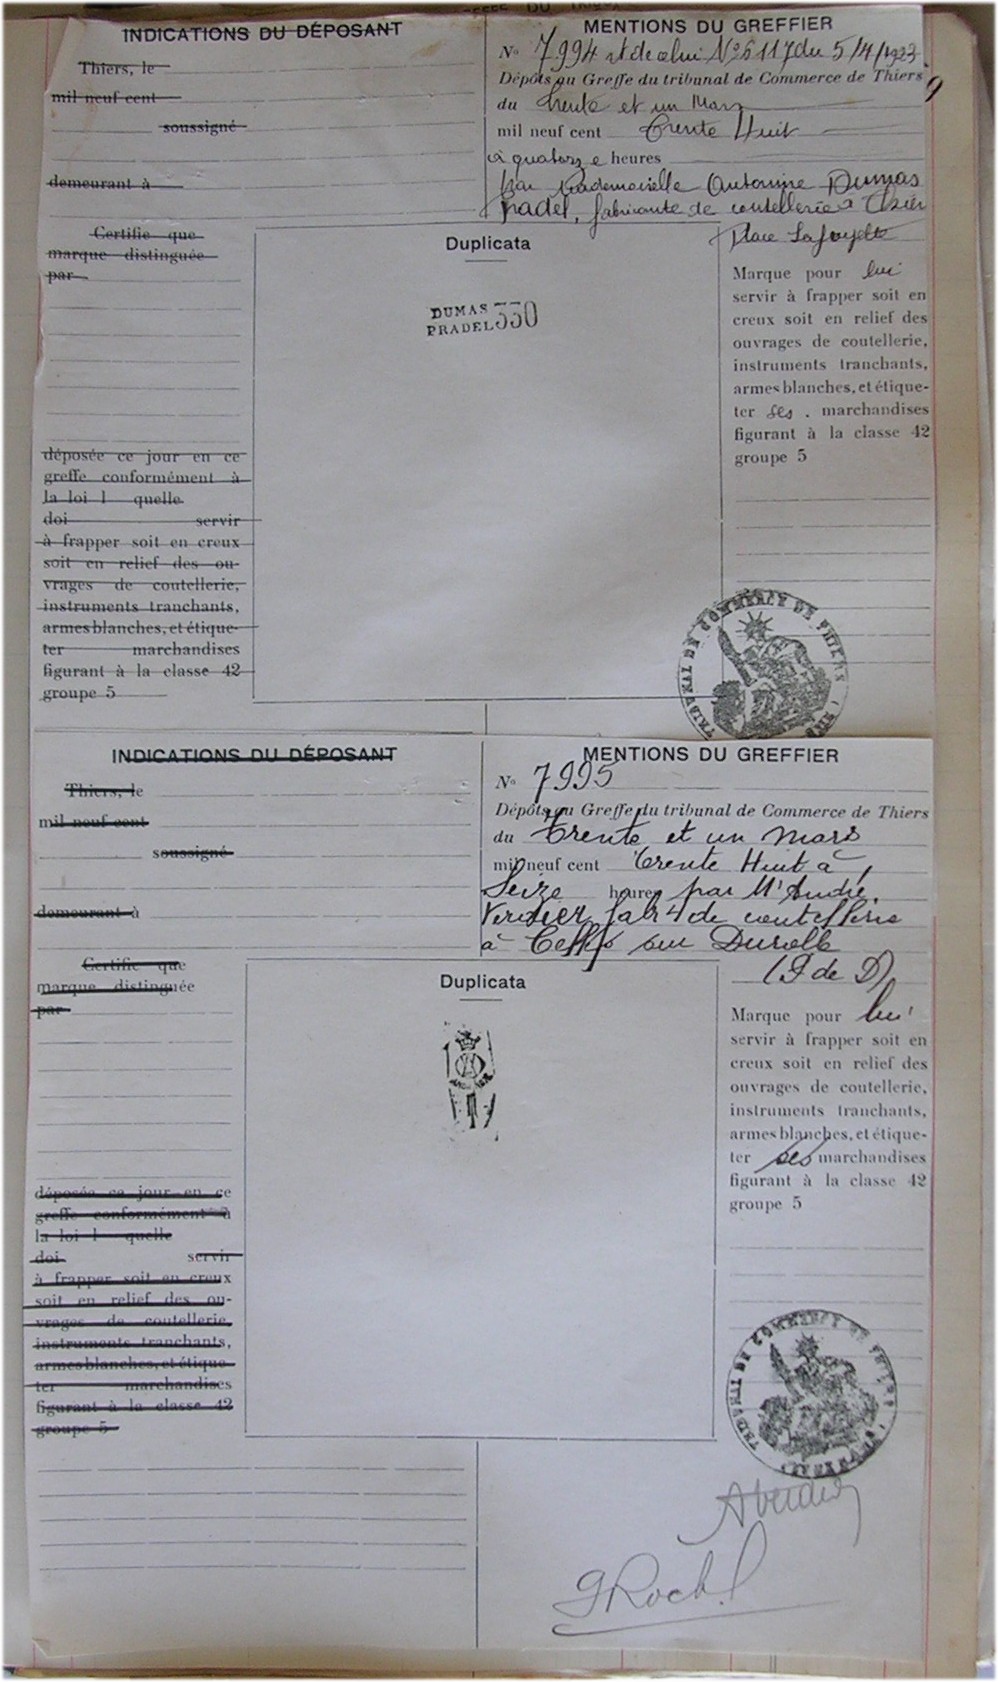 INDICATIONS DU DÉPOSANT
Thiers, le
mil neuf cent
soussigné
demeurant à
Certifie que
marque distinguée
par
déposée ce jour en ce
greffe conformément à
la loi l quelle
doi servir
à frapper soit en creux
soit en relief des ou-
vrages de coutellerie,
instruments tranchants,
armes blanches, et étique-
ter marchandises
figurant à la classe 42
groupe 5
MENTIONS DU GREFFIER
No 7.994 et de celui No 6117 du 5/4/1923.
Dépôts au Greffe du tribunal de Commerce de Thiers
du trente et un Mars
mil neuf cent Trente Huit
à quatorze heures
par Mademoiselle Antonine Dumas
Pradel, fabricante de coutellerie à Thiers
Place Lafayette
Duplicata
DUMAS
PRADEL 330
Marque pour lui
servir à frapper soit en
creux soit en relief des
ouvrages de coutellerie,
instruments tranchants,
armes blanches, et étique-
ter ses marchandises
figurant à la classe 42
groupe 5
TRIBUNAL DE COMMERCE DE THIERS
INDICATIONS DU DÉPOSANT
Thiers, le
mil neuf cent
soussigné
demeurant à
Certifie que
marque distinguée
par
déposée ce jour en ce
greffe conformément à
la loi l quelle
doi servir
à frapper soit en creux
soit en relief des ou-
vrages de coutellerie,
instruments tranchants,
armes blanches, et étique-
ter marchandises
figurant à la classe 42
groupe 5
MENTIONS DU GREFFIER
No 7995
Dépôts au Greffe du tribunal de Commerce de Thiers
du Trente et un Mars
mil neuf cent Trente Huit à
Seize heures par Mr André
Verdier fabt de coutellerie
à Celles sur Durolle
(P de D)
Duplicata
Marque pour lui
servir à frapper soit en
creux soit en relief des
ouvrages de coutellerie,
instruments tranchants,
armes blanches, et étique-
ter ses marchandises
figurant à la classe 42
groupe 5
TRIBUNAL DE COMMERCE DE THIERS
AVerdier
GRoche